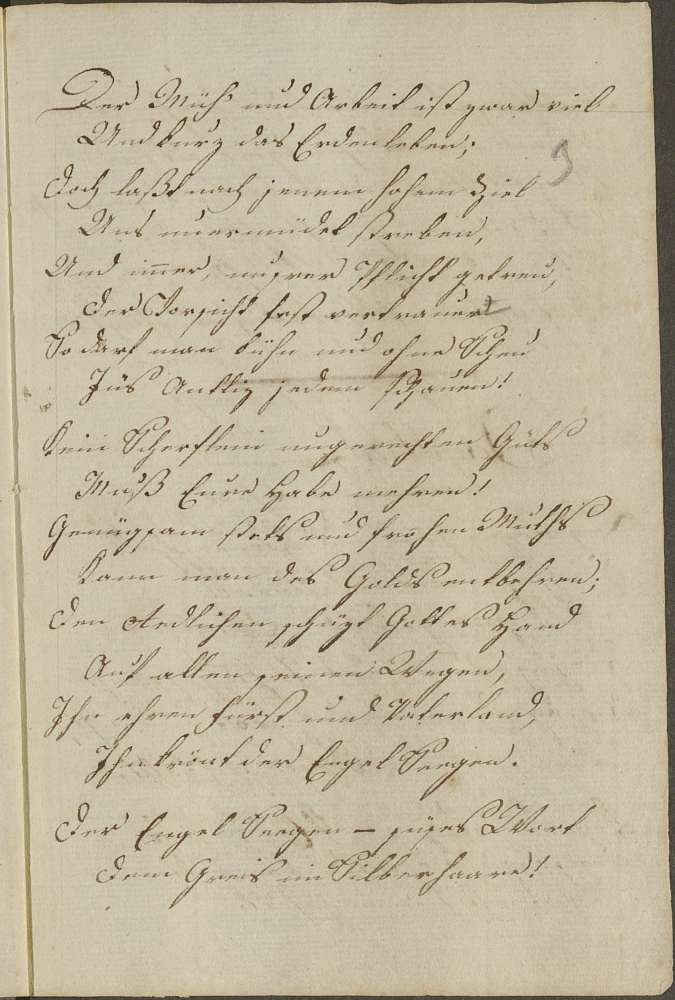 Der Müh' und Arbeit ist zwar viel
Und kurz das Erdenleben;
9
Doch laßt nach jenem hohem Ziel
Uns unermüdet streben,
Und immer, unsrer Pflicht getreu,
Der Vorsicht fest vertrauen
So darf man kühn und ohne Scheu
Ins Antliz jedem schauen!
Kein Scherflein ungerechten Guts
Muß Eure Habe mehren!
Genügsam stets und frohen Muths
Kann man des Golds entbehren;
Den Redlichen schüzt Gottes Hand
Auf allen seinen Wegen,
Ihn ehren Fürst und Vaterland,
Ihn krönt der Engel Seegen.
Der Engel Seegen – süses Wort
Dem Greis im Silberhaare!